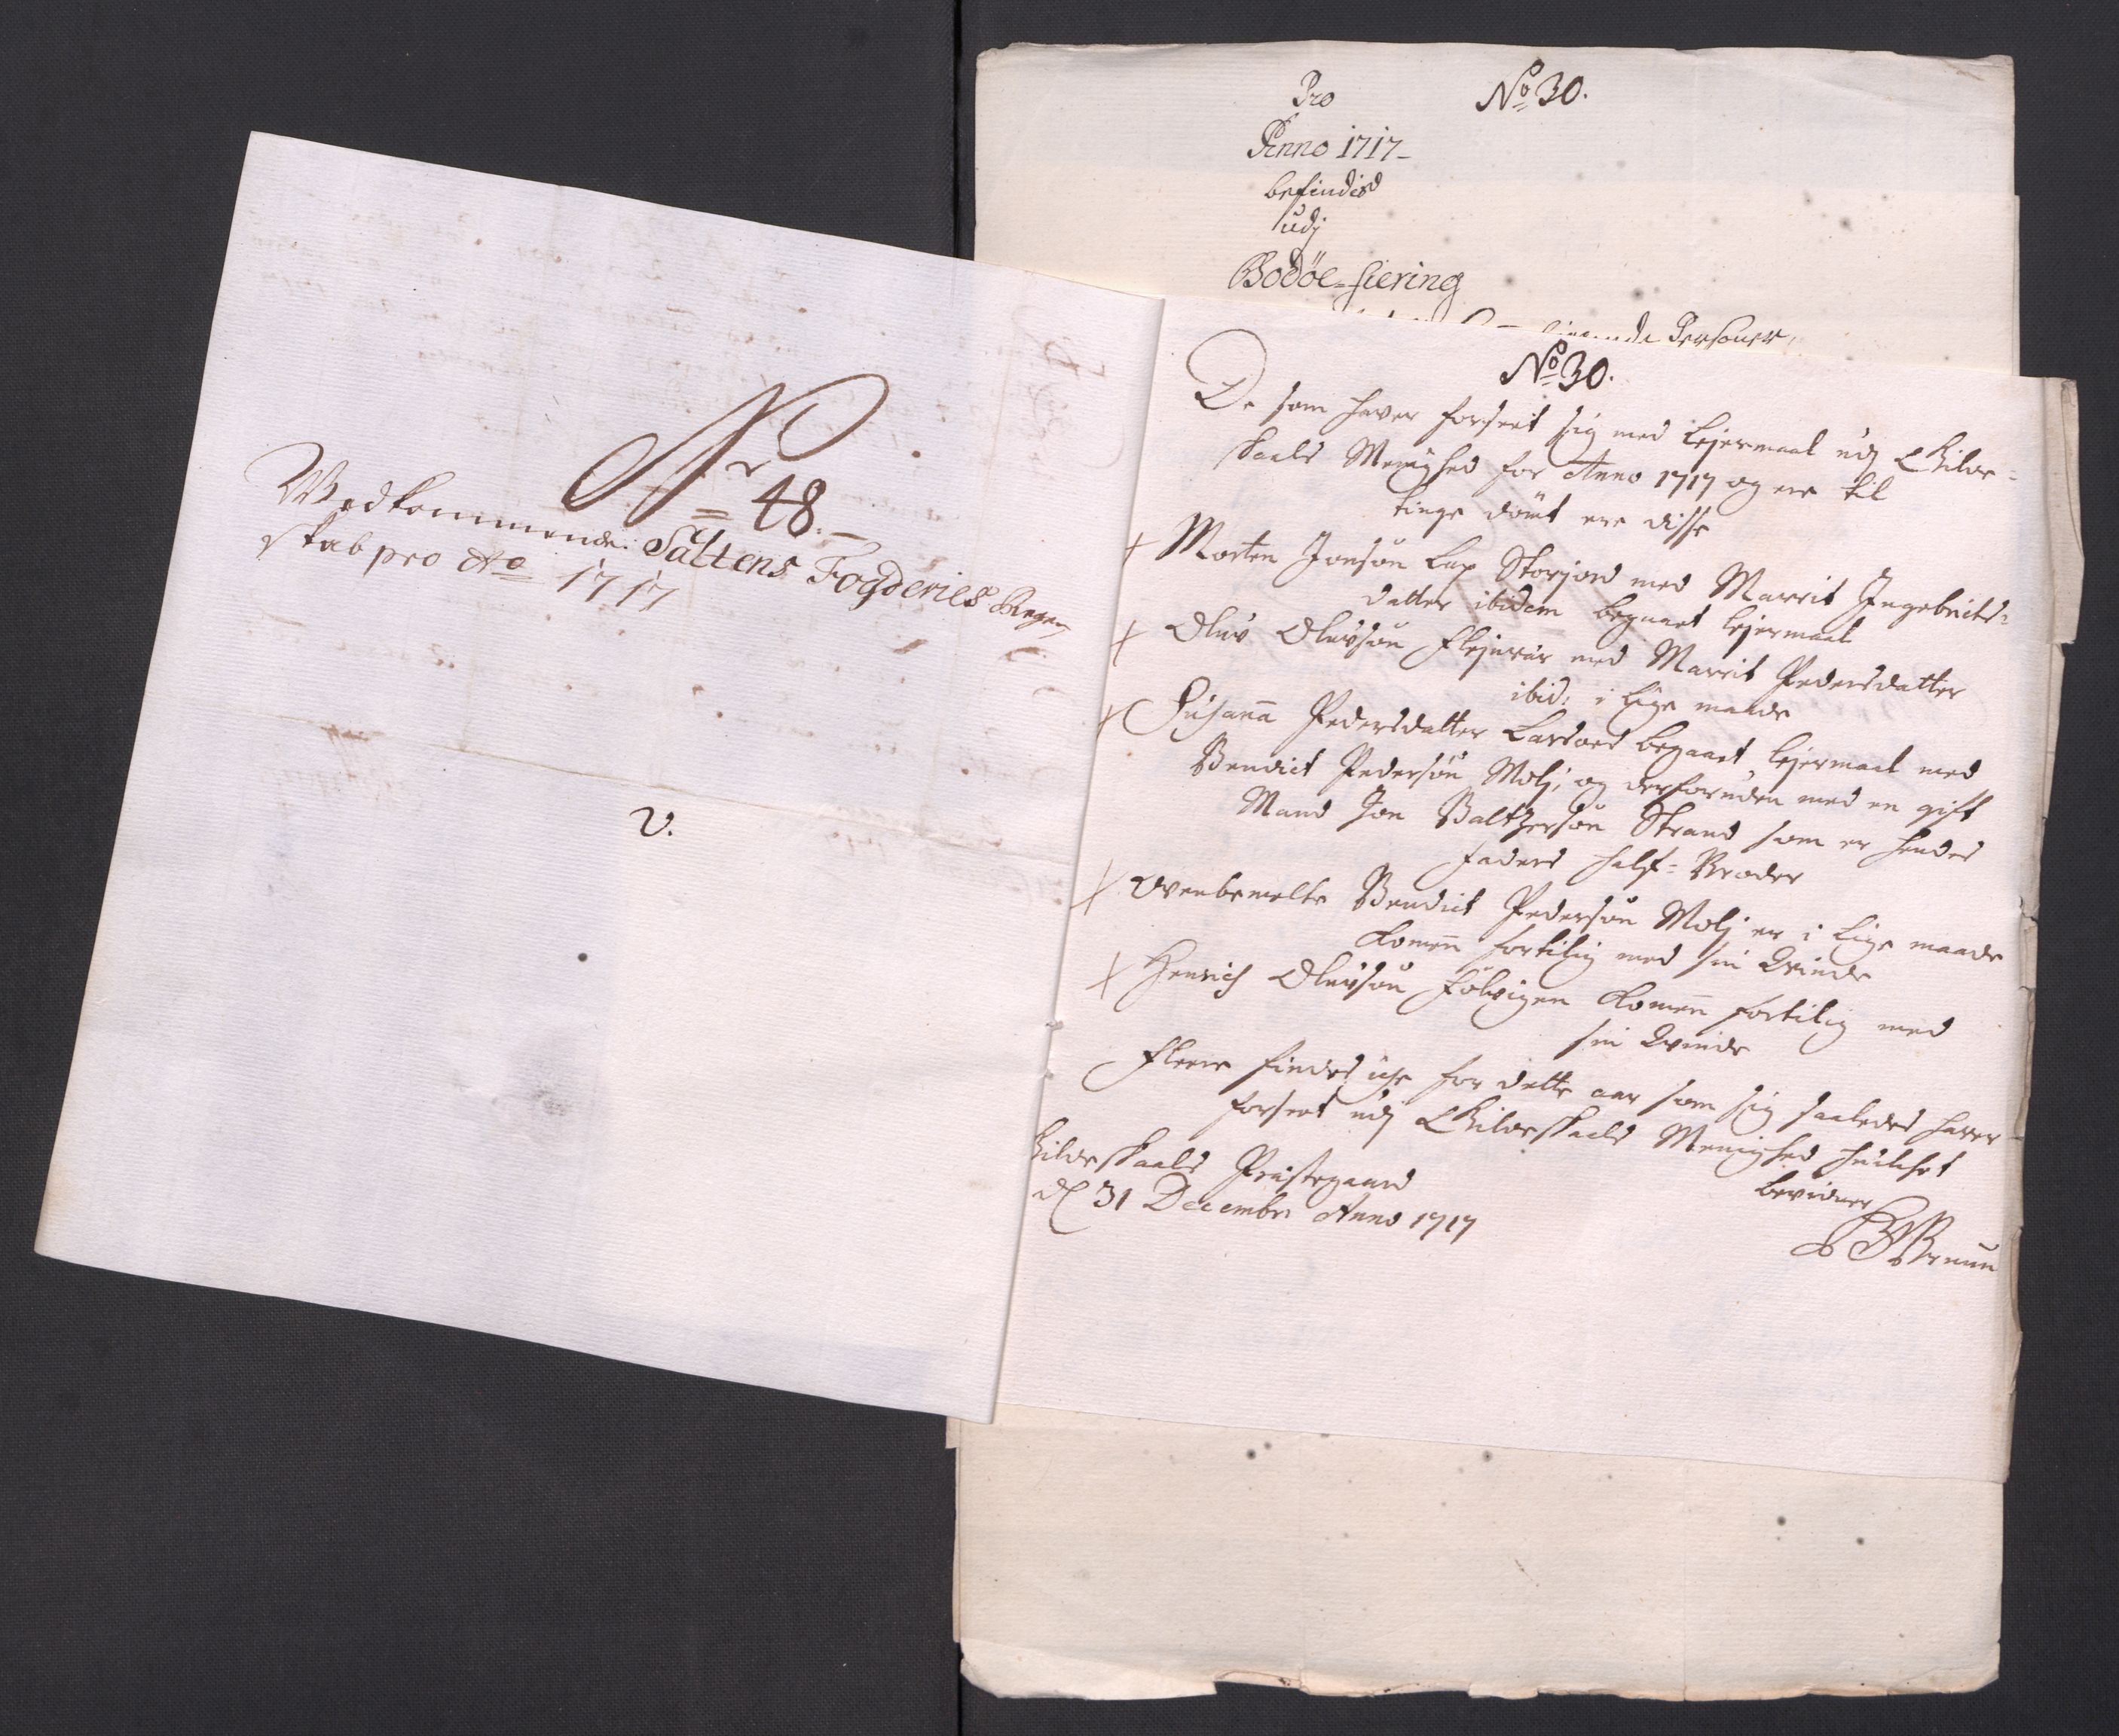 Nr 48.
Vedkommende Saltens Fogderies Regen
skab pro Ao 1717
V.
Pro
No 30.
Anno 1717
befindis
udj
Bodöe-fiering
Personer,
No 30.
De som hafver forseet sig med Lejermaal udj Gilde-
skaals Menighed for Anno 1717 og ere til
tinge dömt ere disse
Morten Jonsön Lap Storjord med Marrit Ingebrits-
datter ibidem begaaet lejermaal
Oluv Oluvsön Flejnvær med Marrit Pedersdatter
ibid: i lige maade
Susanna Pedersdatter begaaet lejermaal med
Bendict Pedersön Molj, og desforuden med en gift
Mand Jon Baltzersön Strand som er hendes
faders half-Broder
Ovenbemelte Bendict Pedersön Molj er i lige maade
komen fortilig med sin Qvinde
Henrich Oluvsön komen fortilig med
sin Qvinde
Fleere findes icke for dette aar som sig saaledes haver
forseet udj Gildeskaals Menighed huilcket
bevidner
Gildeskaals Præstegaard
d 31 Decembr Anno 1717
Bruun